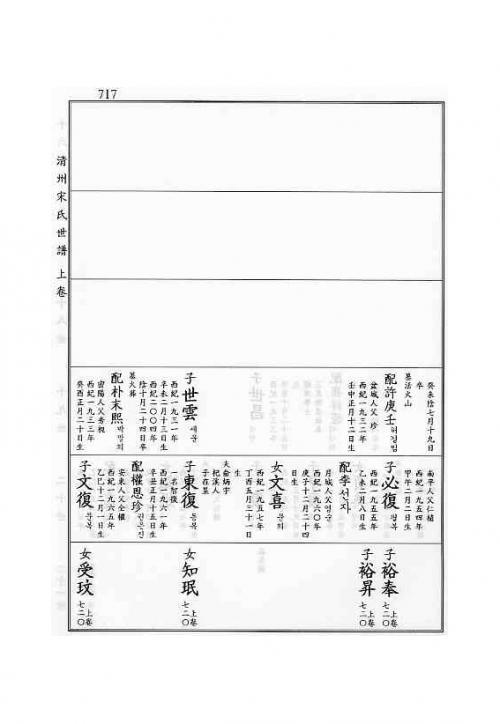 717
清州宋氏世譜 上卷
癸未陰七月十九日
卒
墓活火山
配許庚壬 허경임
盆城人父 珍
西紀一九三二年
壬申正月十二日生
子世雲 세운
西紀一九三一年
辛未二月十三日生
西紀二○○四年
陰十月二十四日卒
墓火葬
配朴末熙 박말희
密陽人父秀
西紀一九三三年
癸酉正月二十日生
南平人父仁植
西紀一九五四年
甲午二月二日生
子必復 필복
西紀一九五五年
乙未二月八日生
配李선자
月城人父영구
西紀一九六○年
庚子十二月二十四
日生
女文喜 문희
西紀一九五七年
丁酉五月三十一日
生
夫兪炳宇
杞溪人
子在
子東復 동복
一名智復
西紀一九六一年
辛丑正月十五日生
配權恩珍 권은진
安東人父全權
西紀一九六五年
乙巳十二月一日生
子文復 문복
子裕奉 上卷 七二○
子裕昇 上卷 七二○
女知珉 上卷 七二○
女受玟 上卷 七二○